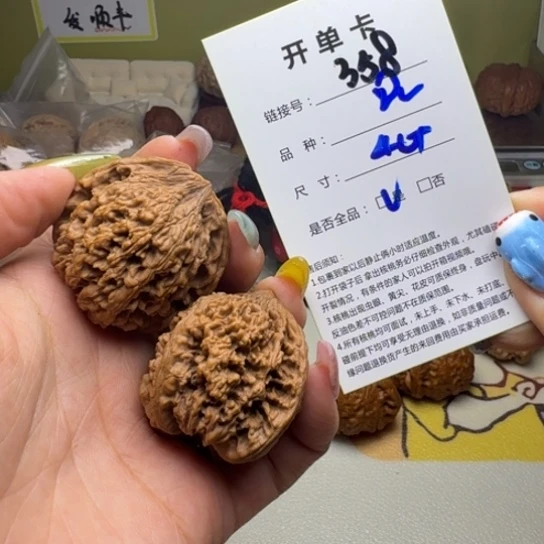 发顺丰
开单卡
链接号：358
品 种：
尺 寸：
是否全品：□是 □否
收后须知：
1.包裹到家以后静止俩小时适应温度。
2.打开袋子后 拿出核桃务必仔细检查外观，尤其磕碰
开裂情况，有条件的家人可以拍开箱视频哦。
3.核桃出现虫眼、黄尖、花皮可质保终身，盘玩中
反油色差不可控问题不在质保范围。
4.所有核桃均可面试，未上手、未下水、未打底、
磕前提下均可享受无理由退换，如非质量问题或不
缘问题退换货产生的来回费用由买家承担运费。